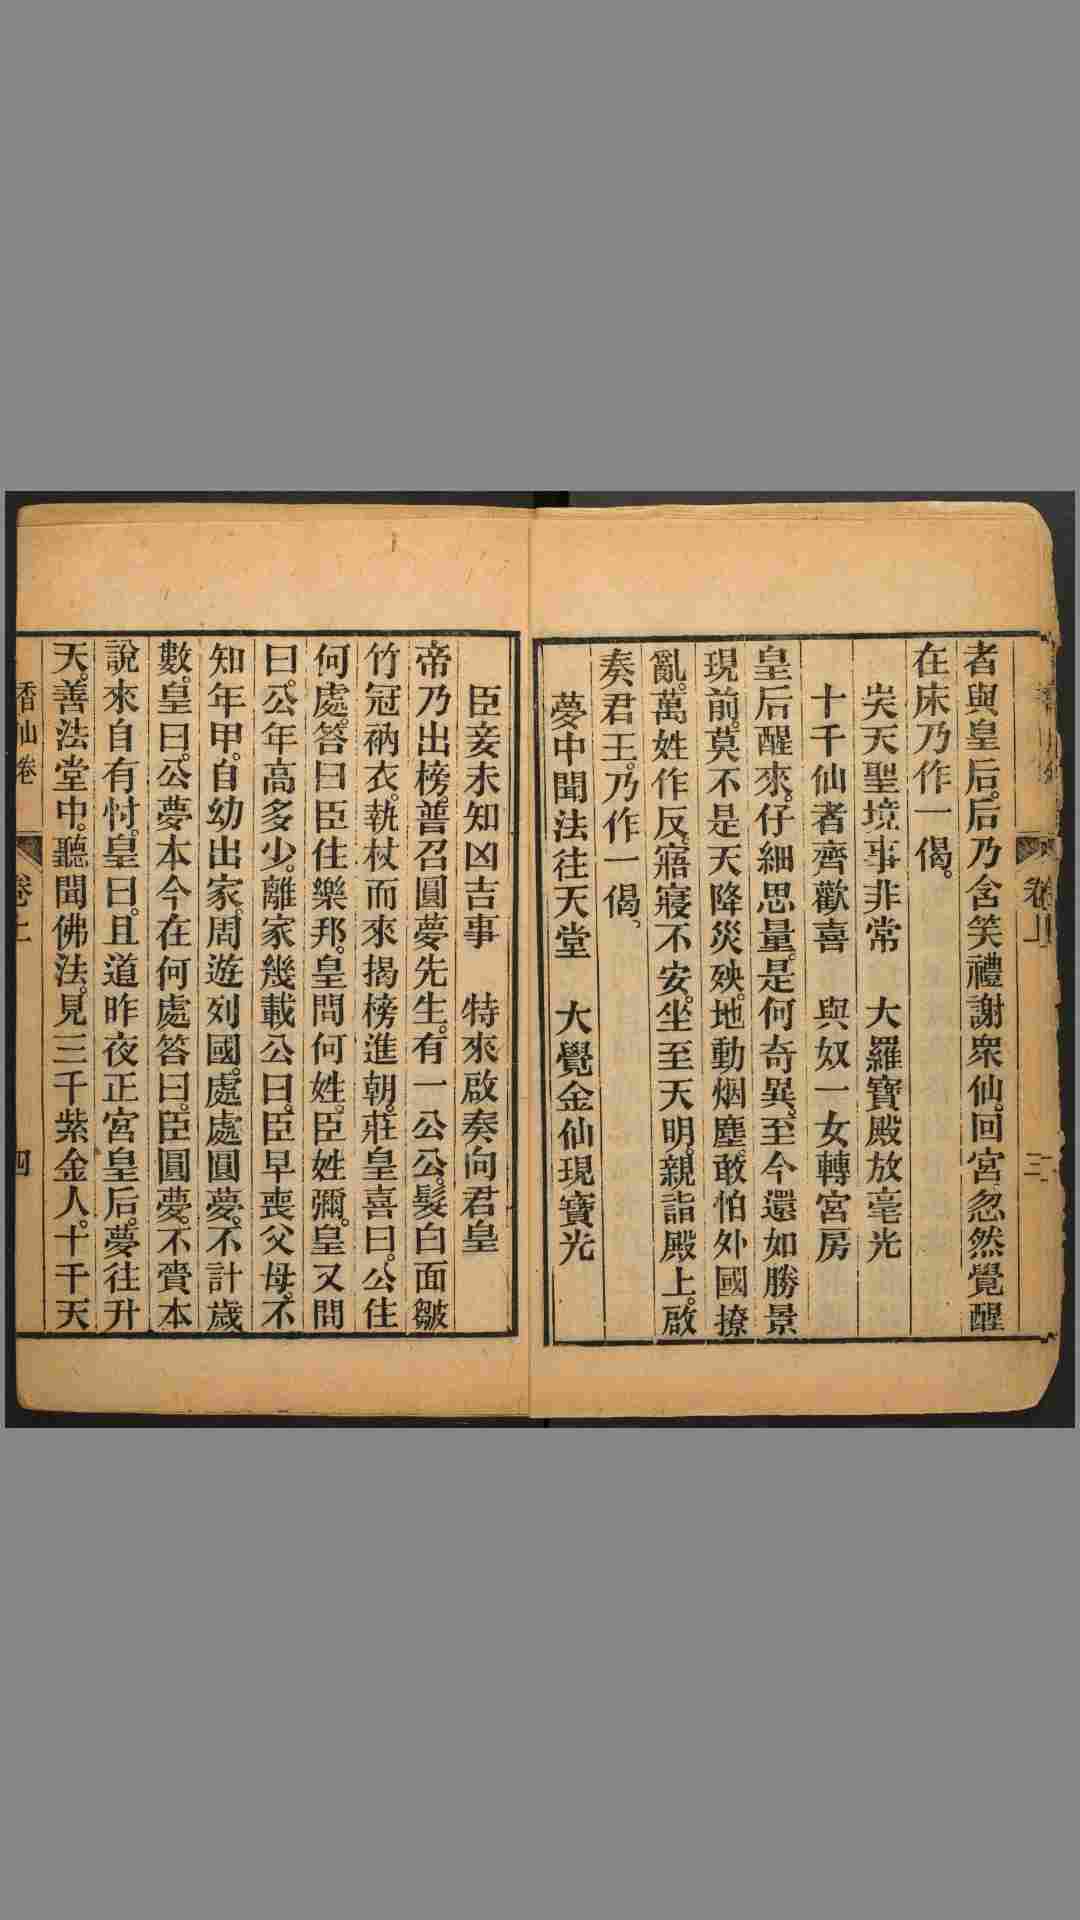 卷上
三
者與皇后。后乃含笑禮謝衆仙。回宮忽然覺醒
在床乃作一偈。
昊天聖境事非常　大羅寶殿放毫光
十千仙者齊歡喜　與奴一女轉宮房
皇后醒來。仔細思量。是何奇異。至今還如勝景
現前。莫不是天降災殃。地動烟塵。敢怕外國撩
亂。萬姓作反。寤寐不安。坐至天明。親詣殿上。啟
奏君王。乃作一偈。
夢中聞法往天堂　大覺金仙現寶光
臣妾未知凶吉事　特來啟奏向君皇
帝乃出榜。普召圓夢先生。有一公公。髮白面皺
竹冠衲衣。執杖而來。揭榜進朝。莊皇喜曰。公住
何處。答曰臣住樂邦。皇問何姓。臣姓彌。皇又問
曰。公年高多少。離家幾載公曰。臣早喪父母。不
知年甲。自幼出家。周遊列國。處處圓夢。不計歲
數。皇曰。公夢本今在何處答曰。臣圓夢。不賫本
說來自有忖。皇曰。且道昨夜正宮皇后。夢往升
天。善法堂中。聽聞佛法。見三千紫金人。十千天
香仙卷
卷上
四